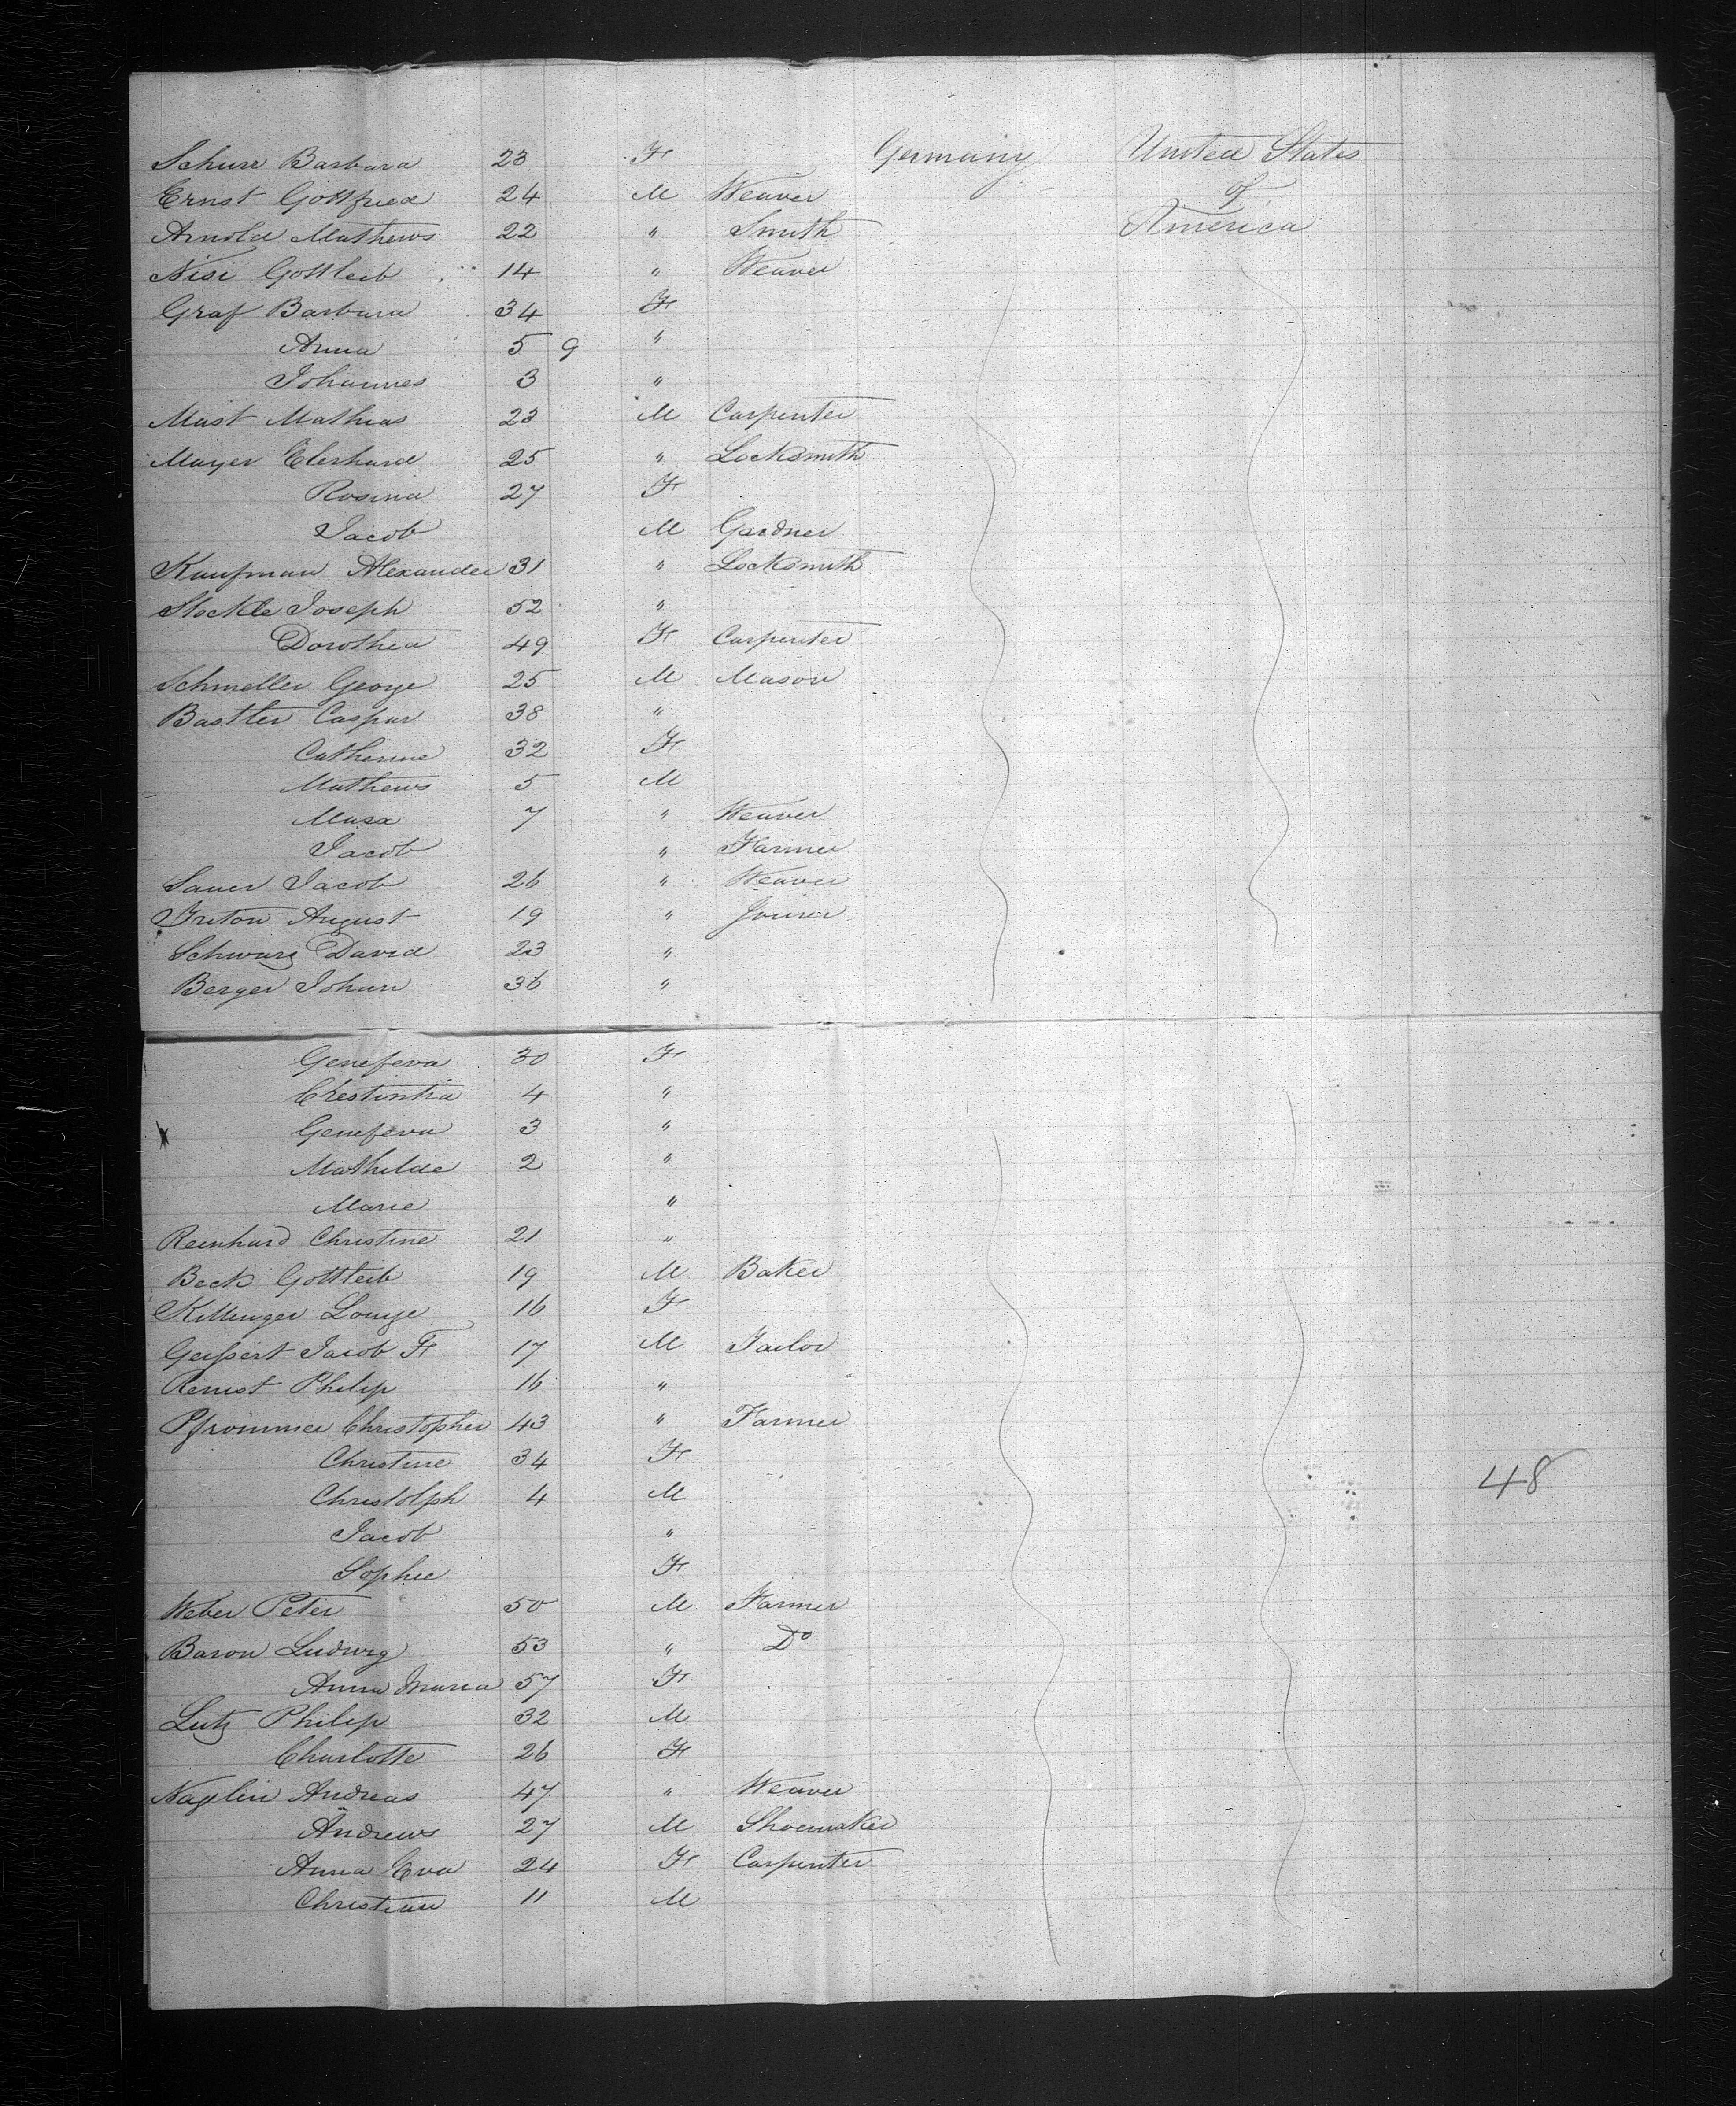 Schure Barbara 23 F Germany United States
Ernst Gottfried 24 M Weaver of
Arnold Mathews 22 " Smith America
Nisi Gottleib 14 " Weaver
Graf Barbara 34 F
Anna 5 9 "
Johannes 3 "
Mast Mathias 23 M Carpenter
Mayer Eberhard 25 " Locksmith
Rosina 27 F
Jacob M Gardner
Kaufman Alexander 31 " Locksmith
Stockle Joseph 52 "
Dorothea 49 F Carpenter
Schmeller George 25 M Mason
Bastler Caspar 38 "
Catherine 32 F
Mathews 5 M
Marx 7 " Weaver
Jacob " Farmer
Sauer Jacob 26 " Weaver
August 19 " Joiner
Schwarz David 23 "
Berger Johan 36 "
Genefeva 30 F
Crestintia 4 "
Genefeva 3 "
Mathilde 2 "
Marie "
Reinhard Christine 21 "
Beck Gottleib 19 M Baker
Killinger Louise 16 F
Geissert Jacob F 17 M Tailor
Philip 16 "
Pfrommer Christopher 43 " Farmer
Christine 34 F
Christolph 4 M 48
Jacob "
Sophie F
Weber Peter 50 M Farmer
Baron Ludwig 53 " Do
Anna Maria 57 F
Lutz Philip 32 M
Charlotte 26 F
Naglin Andreas 47 " Weaver
Andrews 27 M Shoemaker
Anna Eva 24 F Carpenter
Christian 11 M